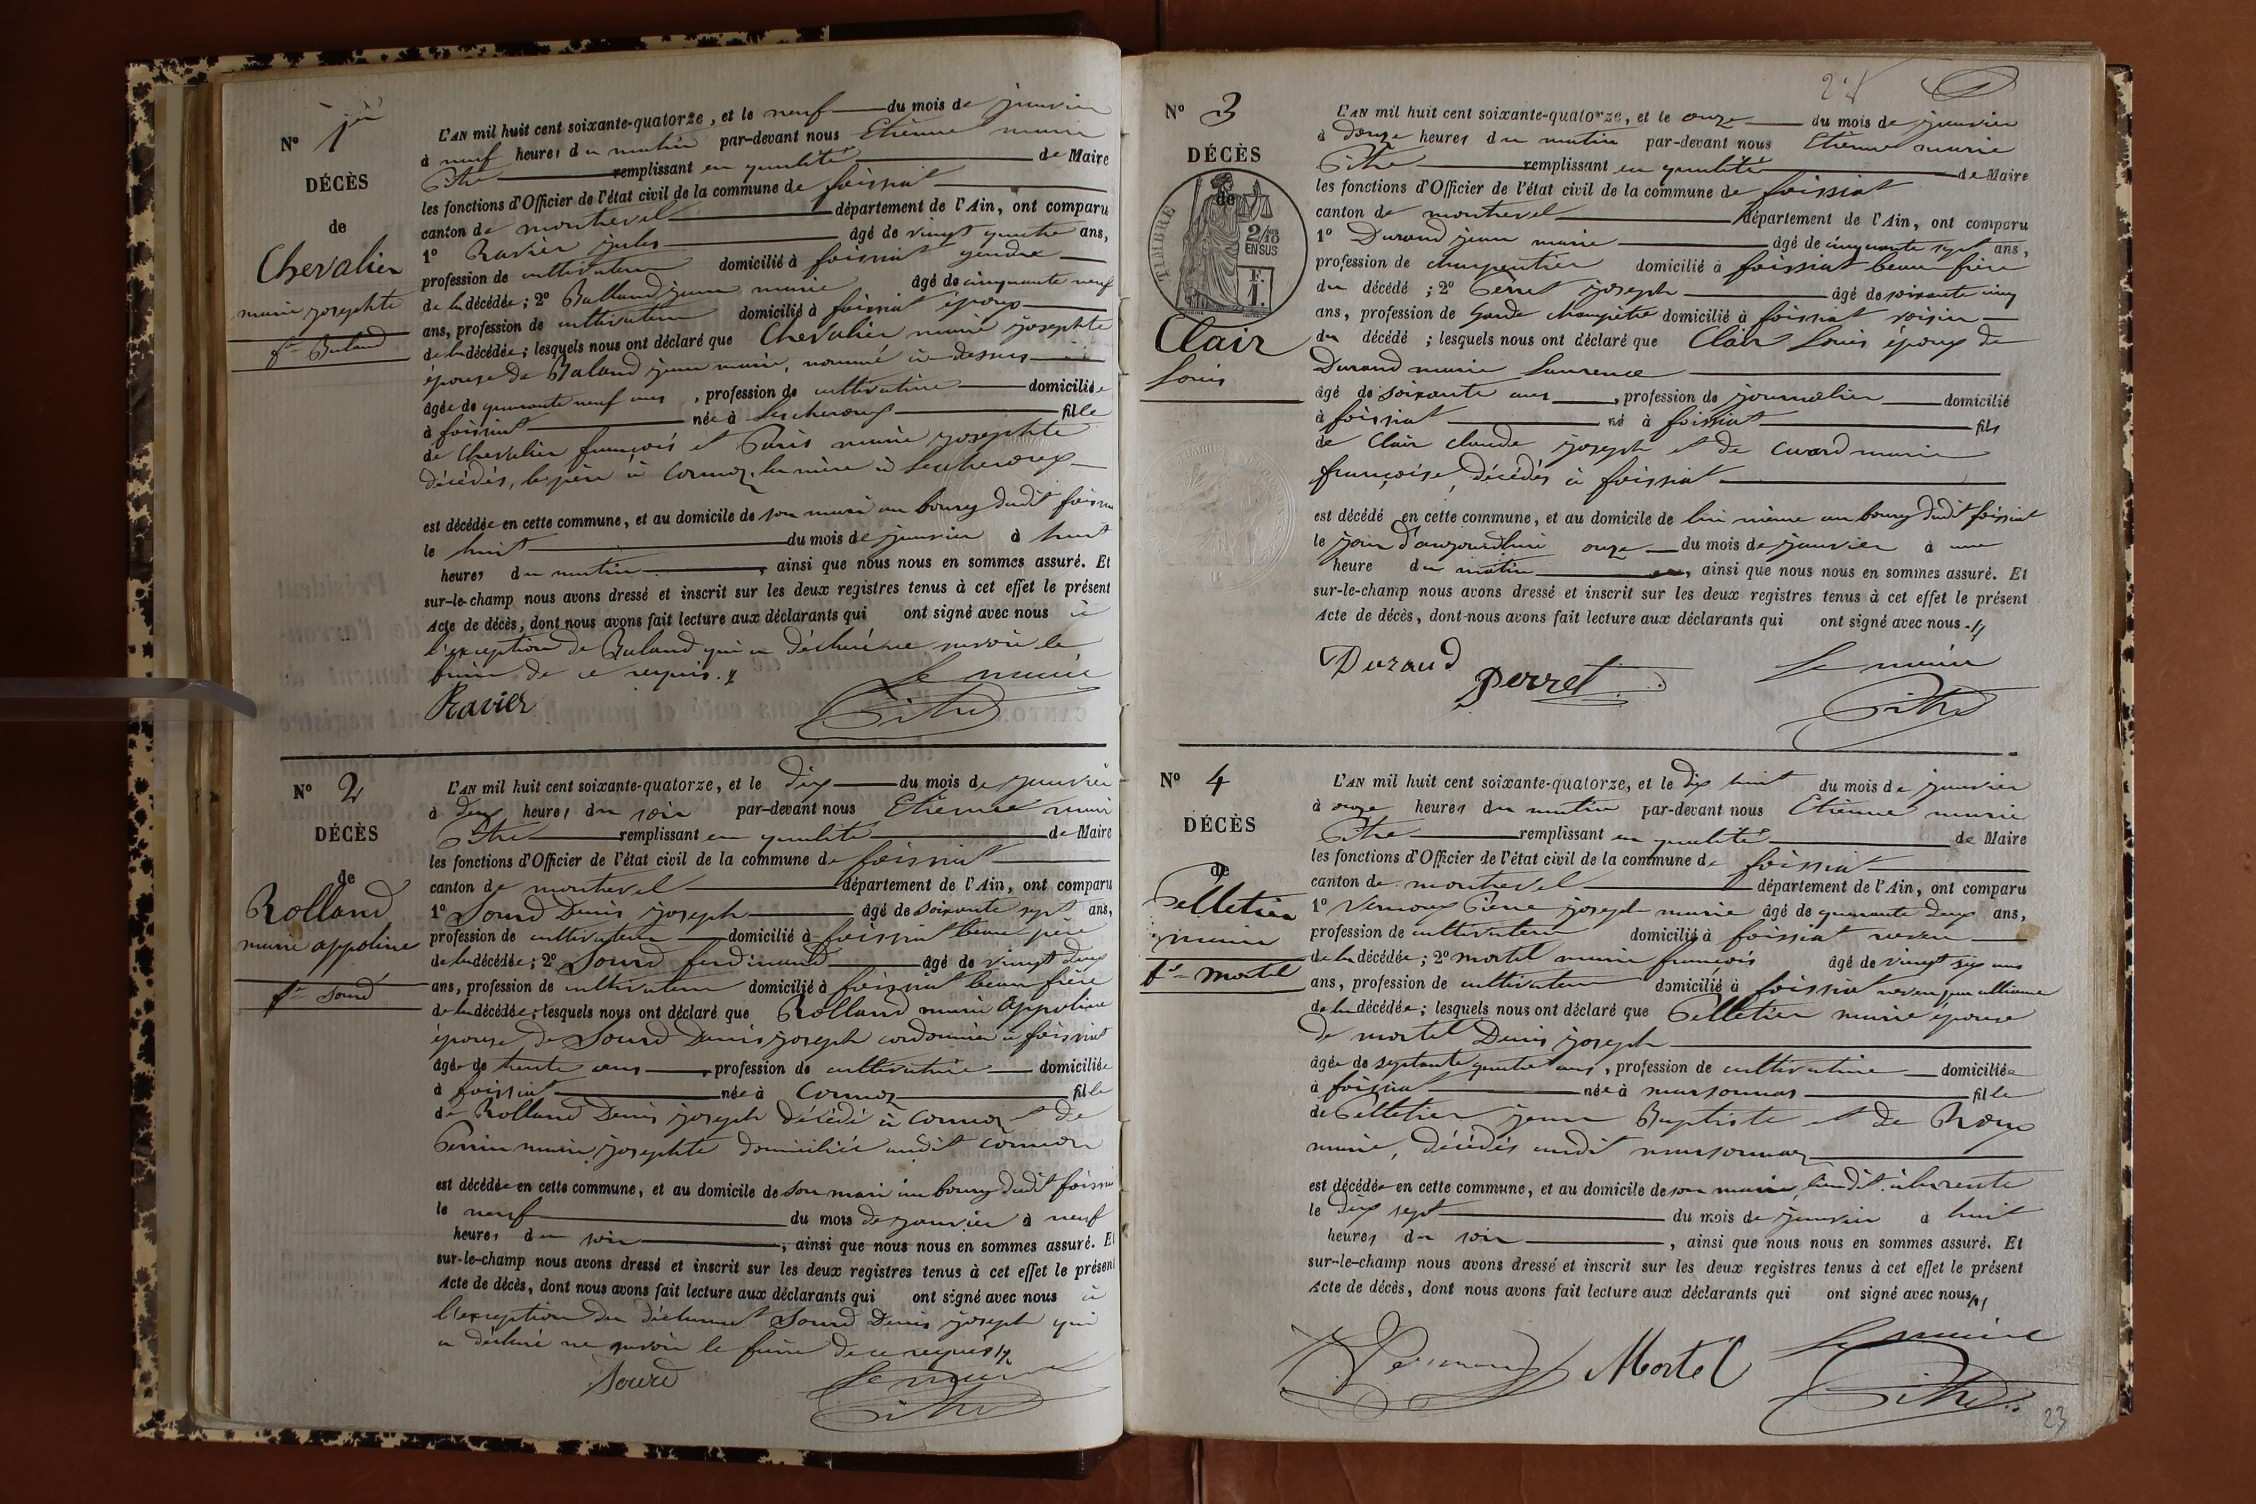 N° 1er
DÉCÈS
de
Chevalier
marie josephte
fe Buland
L'AN mil huit cent soixante-quatorze, et le neuf du mois de janvier
à neuf heures du matin par-devant nous Etienne marie
Pitre remplissant en qualité de Maire
les fonctions d'Officier de l'état civil de la commune de foissiat
canton de montrevel département de l'Ain, ont comparu
1° Ravier jules âgé de vingt quatre ans,
profession de cultivateur domicilié à foissiat gendre
de la décédée; 2° Balland jean marie âgé de cinquante neuf
ans, profession de cultivateur domicilié à foissiat époux
de la décédée; lesquels nous ont déclaré que Chevalier marie josephte
épouse de Baland jean marie, nommé ci-dessus
âgée de quarante neuf ans, profession de cultivatrice domiciliée
à foissiat née à Lescheroux fille
de Chevalier françois et Paris marie josephte
décédés, le père à Cormoz, la mère à Lescheroux
est décédée en cette commune, et au domicile de son mari au bourg dudit foissiat
le huit du mois de janvier à huit
heures du matin, ainsi que nous nous en sommes assuré. Et
sur-le-champ nous avons dressé et inscrit sur les deux registres tenus à cet effet le présent
Acte de décès, dont nous avons fait lecture aux déclarants qui ont signé avec nous à
l'exception de Buland qui a déclaré ne savoir le
faire de ce requis.
Ravier
Le maire
Pitre
N° 2
DÉCÈS
de
Rolland
marie appoline
fe Sourd
L'AN mil huit cent soixante-quatorze, et le dix du mois de janvier
à deux heures du soir par-devant nous Etienne marie
Pitre remplissant en qualité de Maire
les fonctions d'Officier de l'état civil de la commune de foissiat
canton de montrevel département de l'Ain, ont comparu
1° Sourd Denis joseph âgé de soixante sept ans,
profession de cultivateur domicilié à foissiat beau père
de la décédée; 2° Sourd ferdinand âgé de vingt deux
ans, profession de cultivateur domicilié à foissiat beau frère
de la décédée; lesquels nous ont déclaré que Rolland marie appoline
épouse de Sourd Denis joseph cordonnier à foissiat
âgée de trente ans, profession de cultivatrice domiciliée
à foissiat née à Cormoz fille
de Rolland Denis joseph décédé à Cormoz et de
Perrin marie josephte domiciliée audit Cormoz
est décédée en cette commune, et au domicile de son mari au bourg dudit foissiat
le neuf du mois de janvier à neuf
heures du soir, ainsi que nous nous en sommes assuré. Et
sur-le-champ nous avons dressé et inscrit sur les deux registres tenus à cet effet le présent
Acte de décès, dont nous avons fait lecture aux déclarants qui ont signé avec nous à
l'exception du déclarant Sourd Denis joseph qui
a déclaré ne savoir le faire de ce requis
Sourd
Le maire
Pitre
N° 3
DÉCÈS
de
TIMBRE
2/10
EN SUS
F.
1.
Clair
Louis
L'AN mil huit cent soixante-quatorze, et le onze du mois de janvier
à douze heures du matin par-devant nous Etienne marie
Pitre remplissant en qualité de Maire
les fonctions d'Officier de l'état civil de la commune de foissiat
canton de montrevel département de l'Ain, ont comparu
1° Durand jean marie âgé de cinquante sept ans,
profession de charpentier domicilié à foissiat beau frère
du décédé; 2° Perret joseph âgé de soixante cinq
ans, profession de Garde champêtre domicilié à foissiat voisin
du décédé; lesquels nous ont déclaré que Clair Louis époux de
Durand marie Laurence
âgé de soixante ans, profession de journalier domicilié
à foissiat né à foissiat fils
de Clair claude joseph et de Curard marie
françoise, décédés à foissiat
est décédé en cette commune, et au domicile de lui même au bourg dudit foissiat
le jour d'aujourd'hui onze du mois de janvier à une
heure du matin, ainsi que nous nous en sommes assuré. Et
sur-le-champ nous avons dressé et inscrit sur les deux registres tenus à cet effet le présent
Acte de décès, dont nous avons fait lecture aux déclarants qui ont signé avec nous.
Durand
Perret
Le maire
Pitre
N° 4
DÉCÈS
de
Pelletier
marie
fe mortel
L'AN mil huit cent soixante-quatorze, et le dix huit du mois de janvier
à onze heures du matin par-devant nous Etienne marie
Pitre remplissant en qualité de Maire
les fonctions d'Officier de l'état civil de la commune de foissiat
canton de montrevel département de l'Ain, ont comparu
1° Vernoux Pierre joseph marie âgé de quarante deux ans,
profession de cultivateur domicilié à foissiat neveu
de la décédée; 2° mortel marie françois âgé de vingt six ans
ans, profession de cultivateur domicilié à foissiat neveu par alliance
de la décédée; lesquels nous ont déclaré que Pelletier marie épouse
de mortel Denis joseph
âgée de septante quatre ans, profession de cultivatrice domiciliée
à foissiat née à marsonnas fille
de Pelletier jean Baptiste et de Roux
marie, décédés audit marsonnas
est décédée en cette commune, et au domicile de son mari, lieudit
le dix sept du mois de janvier à huit
heures du soir, ainsi que nous nous en sommes assuré. Et
sur-le-champ nous avons dressé et inscrit sur les deux registres tenus à cet effet le présent
Acte de décès, dont nous avons fait lecture aux déclarants qui ont signé avec nous
Vernoux
Mortel
Le maire
Pitre
23